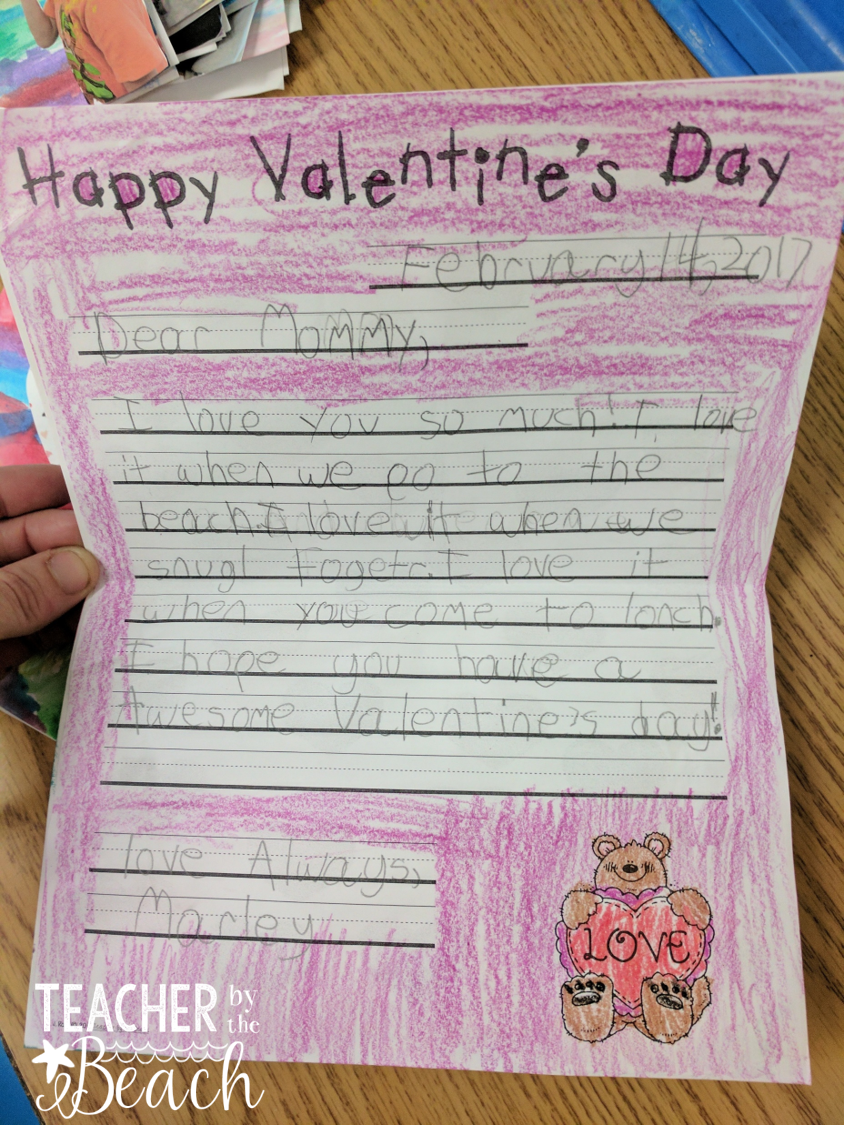 Happy Valentine's Day
February 14, 2017
Dear Mommy,
I love you so much! I love
it when we go to the
beach. I love it when we
snugl togetr. I love it
when you come to lonch.
I hope you have a
Awesome Valentine's day!
love Always,
Marley
LOVE
TEACHER by
the
Beach